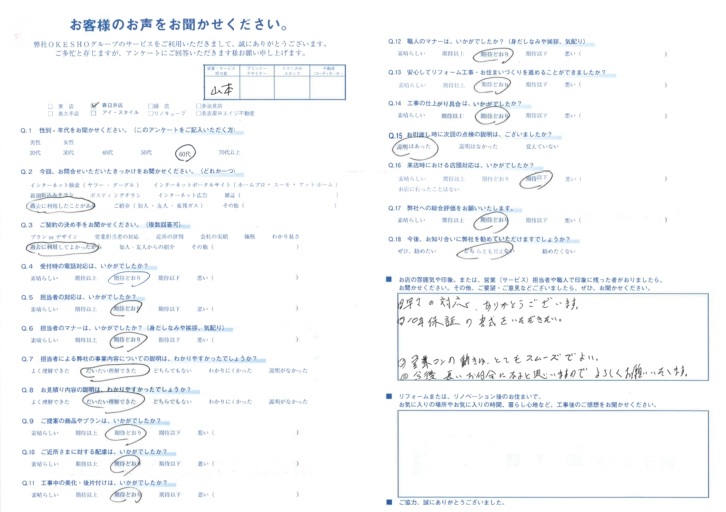 お客様のお声をお聞かせください。
弊社OKESHOグループのサービスをご利用いただきまして、誠にありがとうございます。
ご多忙と存じますが、アンケートにご回答いただきます様お願い申し上げます。
営業・サービス担当者
プランナーデザイナー
山本
□ 本店 ☑ 春日井店 □ 緑店 □ 名東店
□ アイ・スタイル □ リノキューブ
Q.1 性別・年代をお聞かせください。(このアンケートをご記入いただく方)
男性 女性
20代 30代 40代 50代 60代 70代以上
Q.2 今回、お問合せいただいたきっかけをお聞かせください。(どれか一つ)
インターネット検索(ヤフー・グーグル) インターネットポータルサイト(ホームプロ・スーモ・アットホーム)
新聞折込みチラシ ポスティングチラシ インターネット広告 雑誌( )
過去に利用したことがある ご紹介(知人・友人・東邦ガス) その他( )
Q.3 ご契約の決め手をお聞かせください。(複数回答可)
プラン or デザイン 営業担当者の対応 近所の評判 会社の実績 価格 わかり易さ
過去に利用してよかったから 知人・友人からの紹介 その他( )
Q.4 受付時の電話対応は、いかがでしたか?
素晴らしい 期待以上 期待どおり 期待以下 悪い( )
Q.5 担当者の対応は、いかがでしたか?
素晴らしい 期待以上 期待どおり 期待以下 悪い( )
Q.6 担当者のマナーは、いかがでしたか?(身だしなみや挨拶、気配り)
素晴らしい 期待以上 期待どおり 期待以下 悪い( )
Q.7 担当者による弊社の事業内容についての説明は、わかりやすかったでしょうか?
よく理解できた だいたい理解できた どちらでもない わかりにくかった 説明がなかった
Q.8 お見積り内容の説明は、わかりやすかったでしょうか?
よく理解できた だいたい理解できた どちらでもない わかりにくかった 説明がなかった
Q.9 ご提案の商品やプランは、いかがでしたか?
素晴らしい 期待以上 期待どおり 期待以下 悪い( )
Q.10 ご近所さまに対する配慮は、いかがでしたか?
素晴らしい 期待以上 期待どおり 期待以下 悪い( )
Q.11 工事中の美化・後片付けは、いかがでしたか?
素晴らしい 期待以上 期待どおり 期待以下 悪い( )
Q.12 職人のマナーは、いかがでしたか?(身だしなみや挨拶、気配り)
素晴らしい 期待以上 期待どおり 期待以下 悪い( )
Q.13 安心してリフォーム工事・お住まいづくりを進めることができましたか?
素晴らしい 期待以上 期待どおり 期待以下 悪い( )
Q.14 工事の仕上がり具合は、いかがでしたか?
素晴らしい 期待以上 期待どおり 期待以下 悪い( )
Q.15 お引渡し時に次回の点検の説明は、ございましたか?
説明はあった 説明はなかった 覚えていない
Q.16 来店時における店頭対応は、いかがでしたか?
素晴らしい 期待以上 期待どおり 期待以下 悪い( )
お店に行ったことはない
Q.17 弊社への総合評価をお願いいたします。
素晴らしい 期待以上 期待どおり 期待以下 悪い( )
Q.18 今後、お知り合いに弊社を勧めていただけますでしょうか?
ぜひ、勧めたい どちらともいえない 勧めたくない
■ お店の雰囲気や印象、または、営業(サービス)担当者や職人で印象に残った者がおりましたら、
お聞かせください。その他、ご要望・ご意見などございましたら、ぜひ、お聞かせください。
の対応、ありがとうございます。
10年保証の
の動きは、とてもスムーズでよい。
今後 長いお付合になると思いますので よろしくお願いいたします。
■ リフォームまたは、リノベーション後のお住まいで、
お気に入りの場所やお気に入りの時間、暮らし心地など、工事後のご感想をお聞かせください。
■ ご協力、誠にありがとうございました。